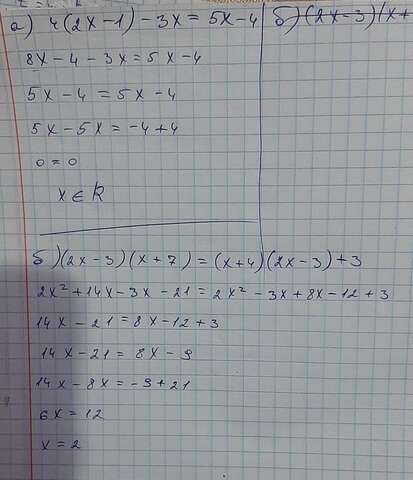 а) 4(2x-1)-3x=5x-4
8x-4-3x=5x-4
5x-4=5x-4
5x-5x=-4+4
0=0
x∈R
б)(2x-3)(x+
б)(2x-3)(x+7)=(x+4)(2x-3)+3
2x²+14x-3x-21=2x²-3x+8x-12+3
14x-21=8x-12+3
14x-21=8x-9
14x-8x=-9+21
6x=12
x=2